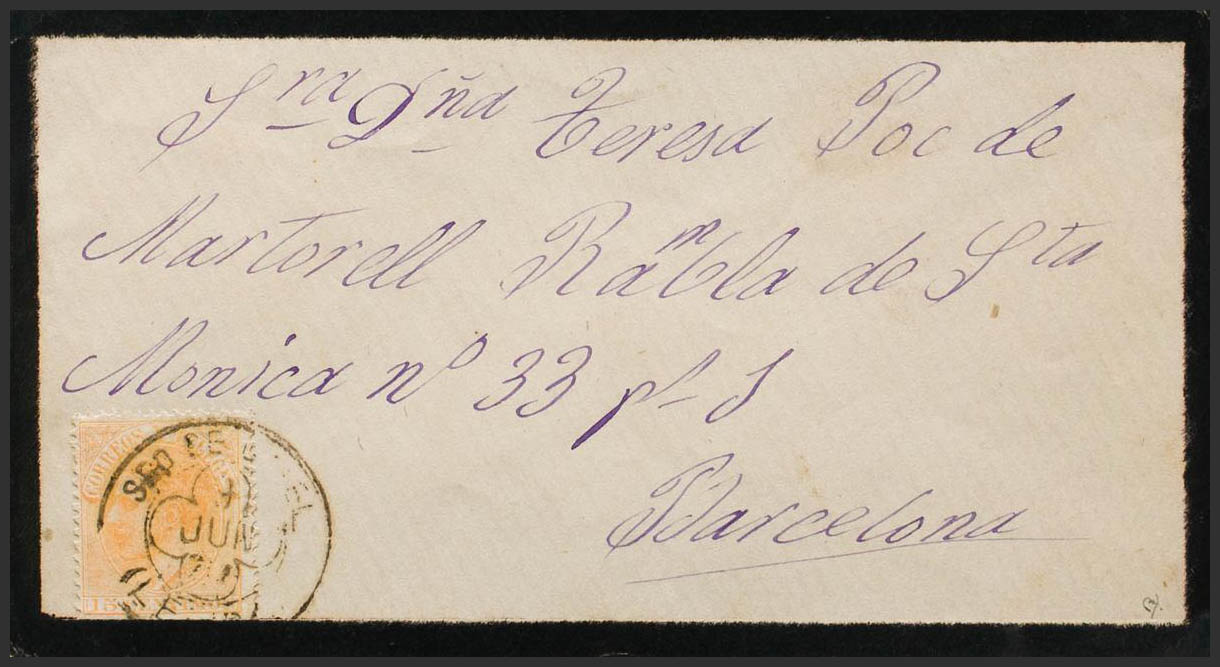 Sra Dña Teresa Poc de
Martorell Rambla de Sta
Monica nº 33 pl 1
Barcelona
CORREOS
SEO DE
JUN
15